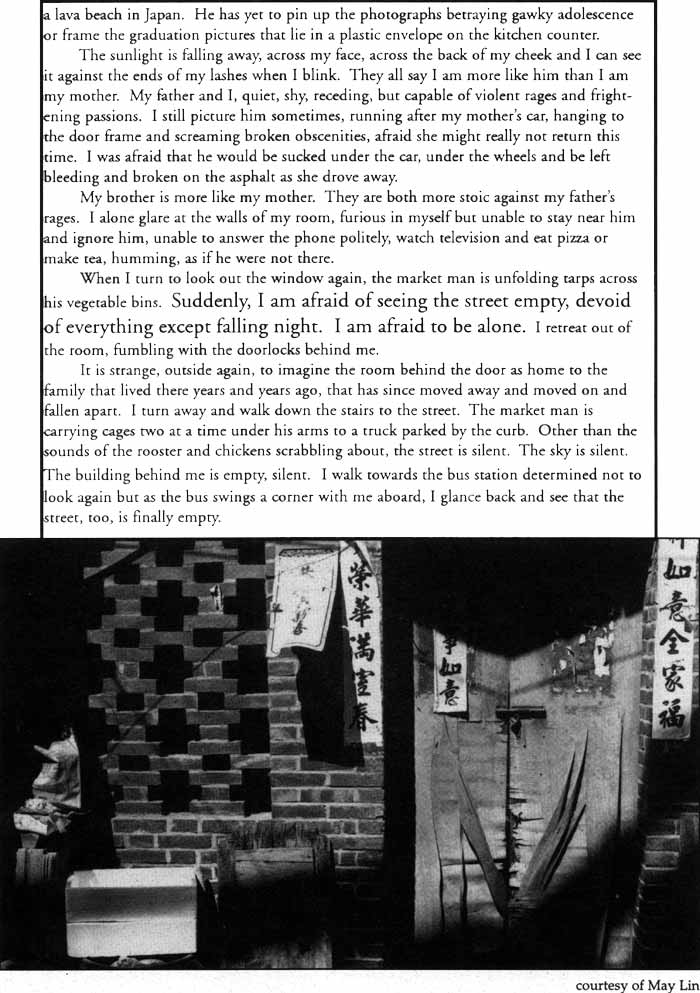 a lava beach in Japan.  He has yet to pin up the photographs betraying gawky adolescence
or frame the graduation pictures that lie in a plastic envelope on the kitchen counter.
The sunlight is falling away, across my face, across the back of my cheek and I can see
it against the ends of my lashes when I blink.  They all say I am more like him than I am
my mother.  My father and I, quiet, shy, receding, but capable of violent rages and fright-
ening passions.  I still picture him sometimes, running after my mother's car, hanging to
the door frame and screaming broken obscenities, afraid she might really not return this
time.  I was afraid that he would be sucked under the car, under the wheels and be left
bleeding and broken on the asphalt as she drove away.
My brother is more like my mother.  They are both more stoic against my father's
rages.  I alone glare at the walls of my room, furious in myself but unable to stay near him
and ignore him, unable to answer the phone politely, watch television and eat pizza or
make tea, humming, as if he were not there.
When I turn to look out the window again, the market man is unfolding tarps across
his vegetable bins.  Suddenly, I am afraid of seeing the street empty, devoid
of everything except falling night.  I am afraid to be alone.  I retreat out of
the room, fumbling with the doorlocks behind me.
It is strange, outside again, to imagine the room behind the door as home to the
family that lived there years and years ago, that has since moved away and moved on and
fallen apart.  I turn away and walk down the stairs to the street.  The market man is
carrying cages two at a time under his arms to a truck parked by the curb.  Other than the
sounds of the rooster and chickens scrabbling about, the street is silent.  The sky is silent.
The building behind me is empty, silent.  I walk towards the bus station determined not to
look again but as the bus swings a corner with me aboard, I glance back and see that the
street, too, is finally empty.
榮華滿室春
事如意
如意全家福
courtesy of May Lin